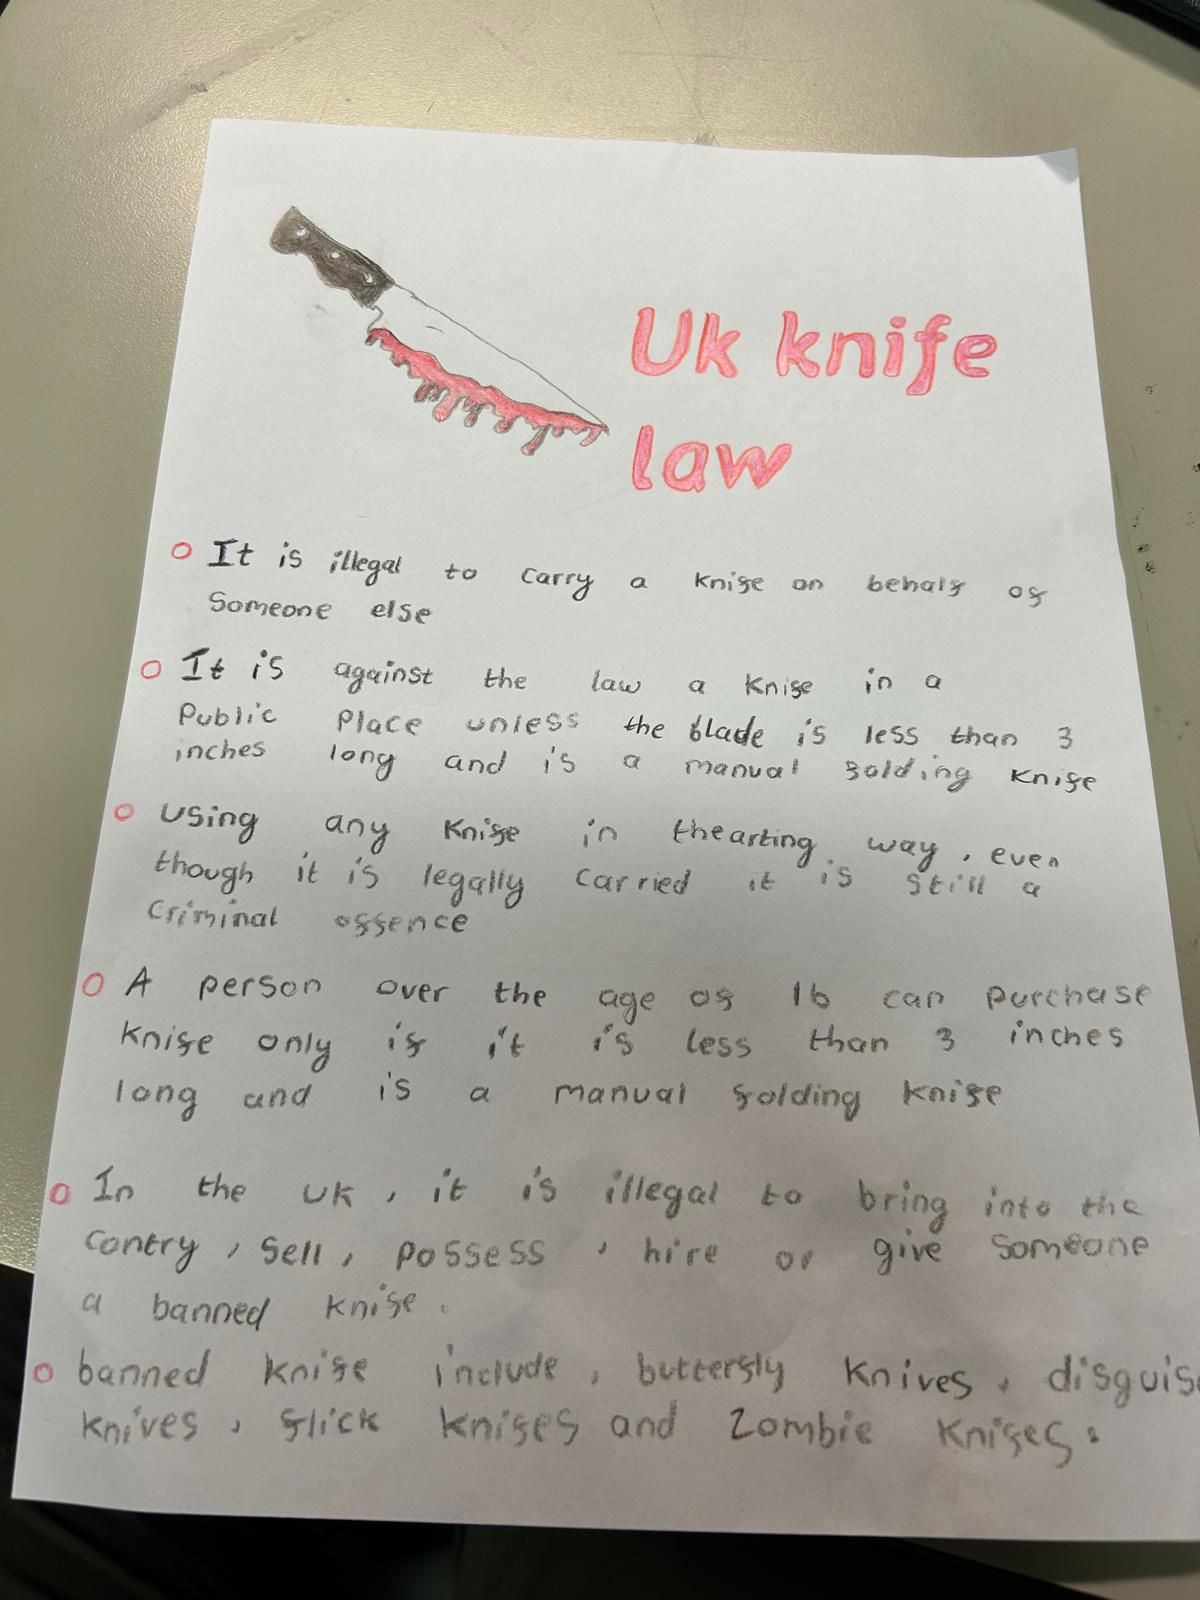 Uk knife
law
It is illegal to carry a knife on behalf of
Someone else
It is against the law a knife in a
Public Place unless the blade is less than 3
inches long and is a manual folding knife
Using any knife in thearting way, even
though it is legally carried it is still a
Criminal offence
A person over the age of 16 can purchase
knife only if it is less than 3 inches
long and is a manual folding knife
In the UK, it is illegal to bring into the
contry, sell, possess, hire or give someone
a banned knife.
banned knife include, butterfly knives, disguis
knives, flick knifes and Zombie knifes.